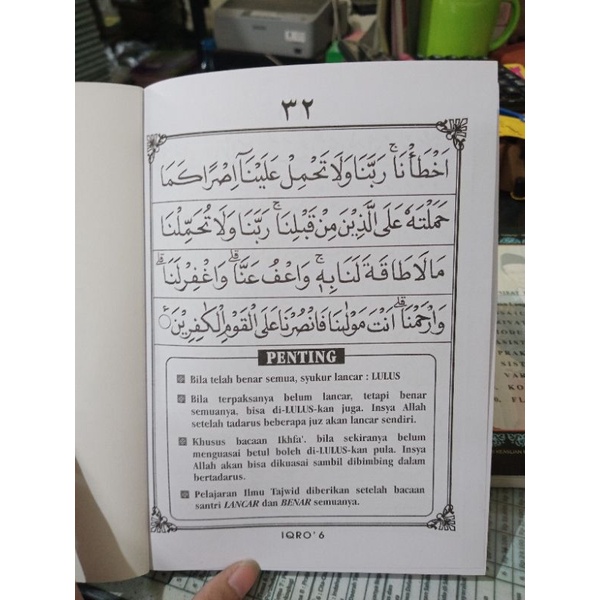 ٣٢
اَخْطَأْنَا ۚ رَبَّنَا وَلَا تَحْمِلْ عَلَيْنَآ اِصْرًا كَمَا
حَمَلْتَهٗ عَلَى الَّذِيْنَ مِنْ قَبْلِنَا ۚ رَبَّنَا وَلَا تُحَمِّلْنَا
مَالَا طَاقَةَ لَنَا بِهٖ ۚ وَاعْفُ عَنَّا ۗ وَاغْفِرْ لَنَا ۗ
وَارْحَمْنَا ۗ اَنْتَ مَوْلٰىنَا فَانْصُرْنَا عَلَى الْقَوْمِ الْكٰفِرِيْنَ ࣖ
PENTING
Bila telah benar semua, syukur lancar : LULUS
Bila terpaksanya belum lancar, tetapi benar
semuanya, bisa di-LULUS-kan juga. Insya Allah
setelah tadarus beberapa juz akan lancar sendiri.
Khusus bacaan Ikhfa'. bila sekiranya belum
menguasai betul boleh di-LULUS-kan pula. Insya
Allah akan bisa dikuasai sambil dibimbing dalam
bertadarus.
Pelajaran Ilmu Tajwid diberikan setelah bacaan
santri LANCAR dan BENAR semuanya.
IQRO' 6